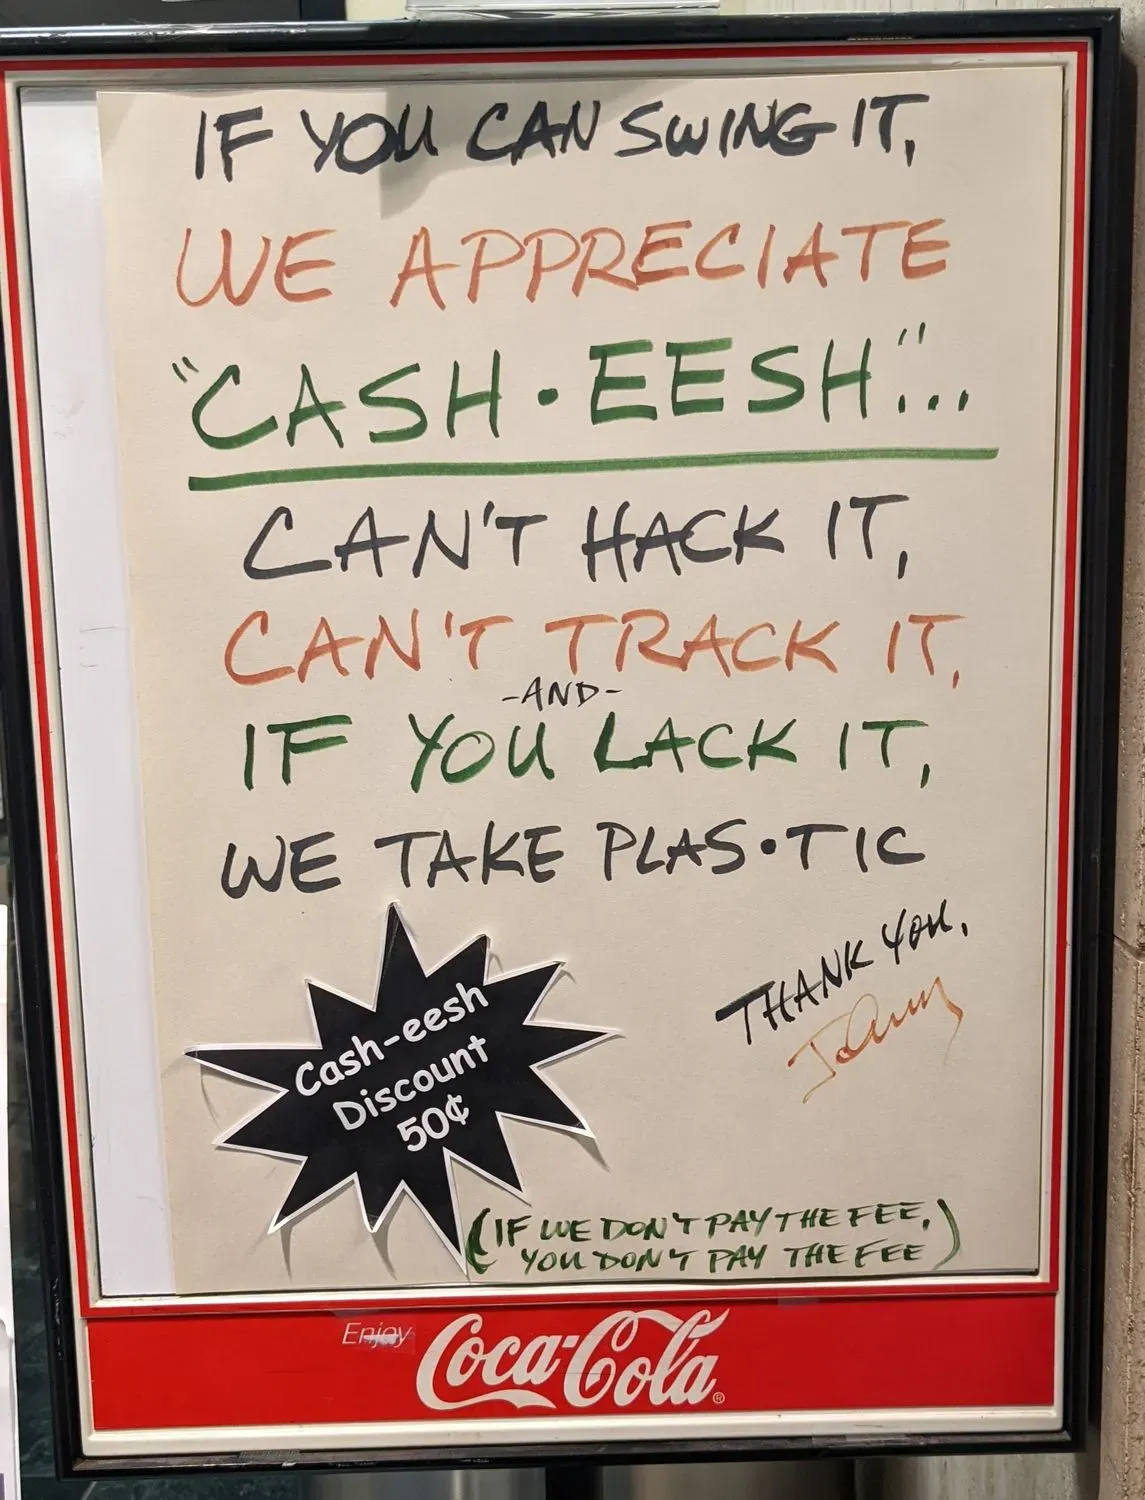 IF YOU CAN SWING IT,
WE APPRECIATE
"CASH·EESH"...
CAN'T HACK IT,
CAN'T TRACK IT,
-AND-
IF YOU LACK IT,
WE TAKE PLAS·TIC
THANK YOU,
Johnny
Cash-eesh
Discount
50¢
(IF WE DON'T PAY THE FEE,
YOU DON'T PAY THE FEE)
Enjoy
Coca-Cola®